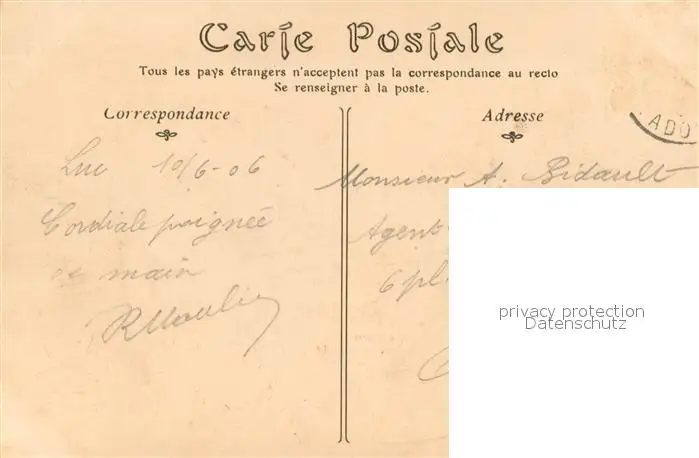 Carte Postale
Tous les pays étrangers n'acceptent pas la correspondance au recto
Se renseigner à la poste.
Correspondance
Luc 10/6-06
Cordiale poignée
de main
Adresse
ADO
Monsieur A. Bidault
Agent
6 pl.
privacy protection
Datenschutz